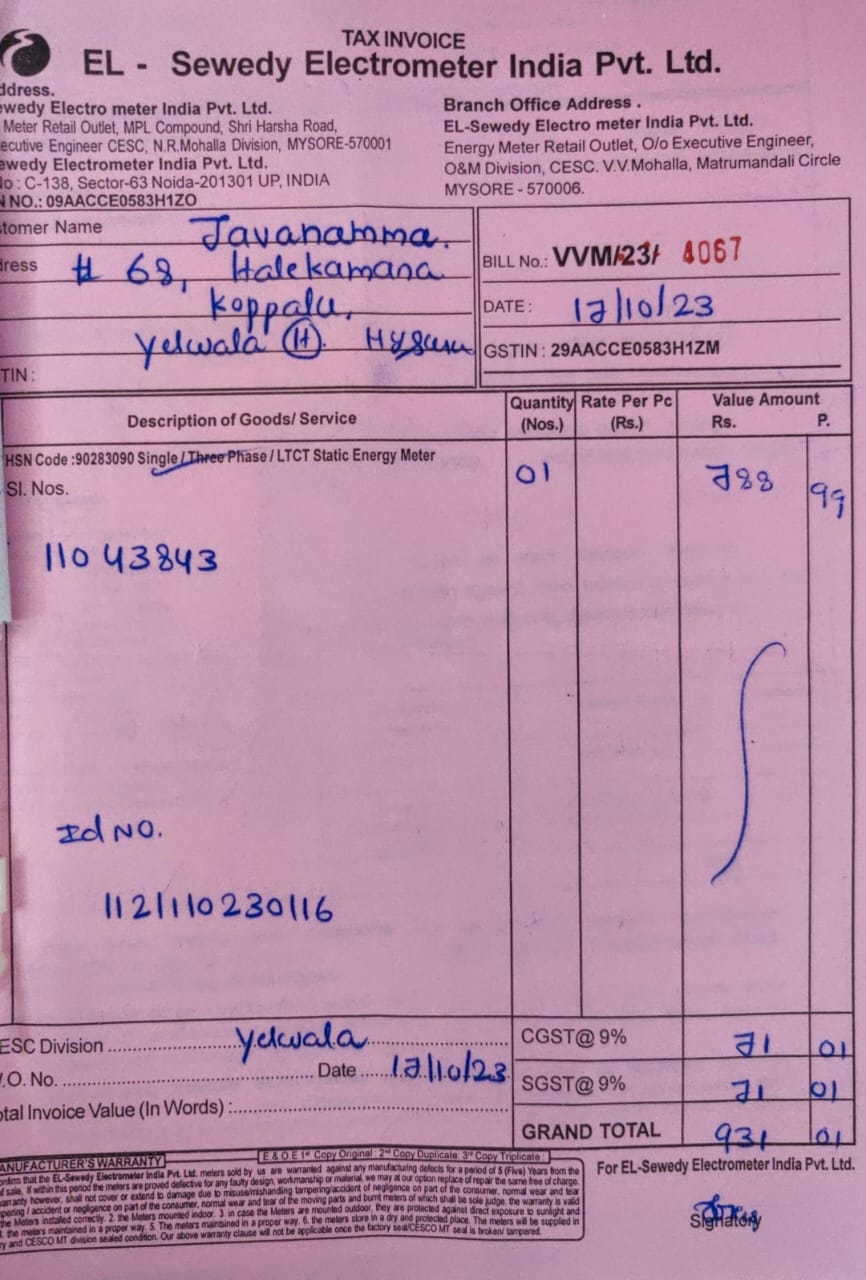 TAX INVOICE
EL - Sewedy Electrometer India Pvt. Ltd.
ddress.
ewedy Electro meter India Pvt. Ltd.
Meter Retail Outlet, MPL Compound, Shri Harsha Road,
ecutive Engineer CESC, N.R.Mohalla Division, MYSORE-570001
ewedy Electrometer India Pvt. Ltd.
No : C-138, Sector-63 Noida-201301 UP, INDIA
N NO.: 09AACCE0583H1ZO
Branch Office Address .
EL-Sewedy Electro meter India Pvt. Ltd.
Energy Meter Retail Outlet, O/o Executive Engineer,
O&M Division, CESC. V.V.Mohalla, Matrumandali Circle
MYSORE - 570006.
tomer Name Javanamma.
ress # 68, Halekamana
Koppalu,
Yelwala (H).
TIN :
BILL No.: VVM/23/ 4067
DATE : 17/10/23
GSTIN : 29AACCE0583H1ZM
Description of Goods/ Service
Quantity (Nos.)
Rate Per Pc (Rs.)
Value Amount
Rs. P.
HSN Code :90283090 Single / Three Phase / LTCT Static Energy Meter
01 788 99
Sl. Nos.
11043843
Id NO.
1121110230116
ESC Division Yelwala
.O. No. Date 17/10/23
otal Invoice Value (In Words) :
CGST@ 9% 71 01
SGST@ 9% 71 01
GRAND TOTAL 931 01
E & O.E 1st Copy Original : 2nd Copy Duplicate: 3rd Copy Triplicate :
ANUFACTURER'S WARRANTY
onfirm that the EL-Sewedy Electrometer India Pvt. Ltd. meters sold by us are warranted against any manufacturing defects for a period of 5 (Five) Years from the
of sale, If within this period the meters are proved defective for any faulty design, workmanship or material, we may at our option replace of repair the same free of charge.
arranty however, shall not cover or extend to damage due to misuse/mishandling tampering/accident of negligence on part of the consumer, normal wear and tear
pering / accident or negligence on part of the consumer, normal wear and tear of the moving parts and burnt meters of which shall be sole judge. the warranty is valid
the Meters installed correctly. 2. the Meters mounted indoor. 3. in case the Meters are mounted outdoor, they are protected against direct exposure to sunlight and
. the meters maintained in a proper way. 5. The meters maintained in a proper way. 6. the meters store in a dry and protected place. The meters will be supplied in
ry and CESCO MT division sealed condition. Our above warranty clause will not be applicable once the factory seal/CESCO MT seal is broken/ tampered.
For EL-Sewedy Electrometer India Pvt. Ltd.
Signatory